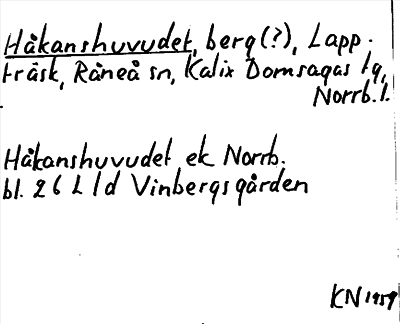 Håkanshuvudet, berg(?), Lapp-
träsk, Råneå sn, Kalix Domsagas tg,
Norrb.l.
Håkanshuvudet ek Norrb.
bl. 26 L 1d Vinbergsgården
KN 1959